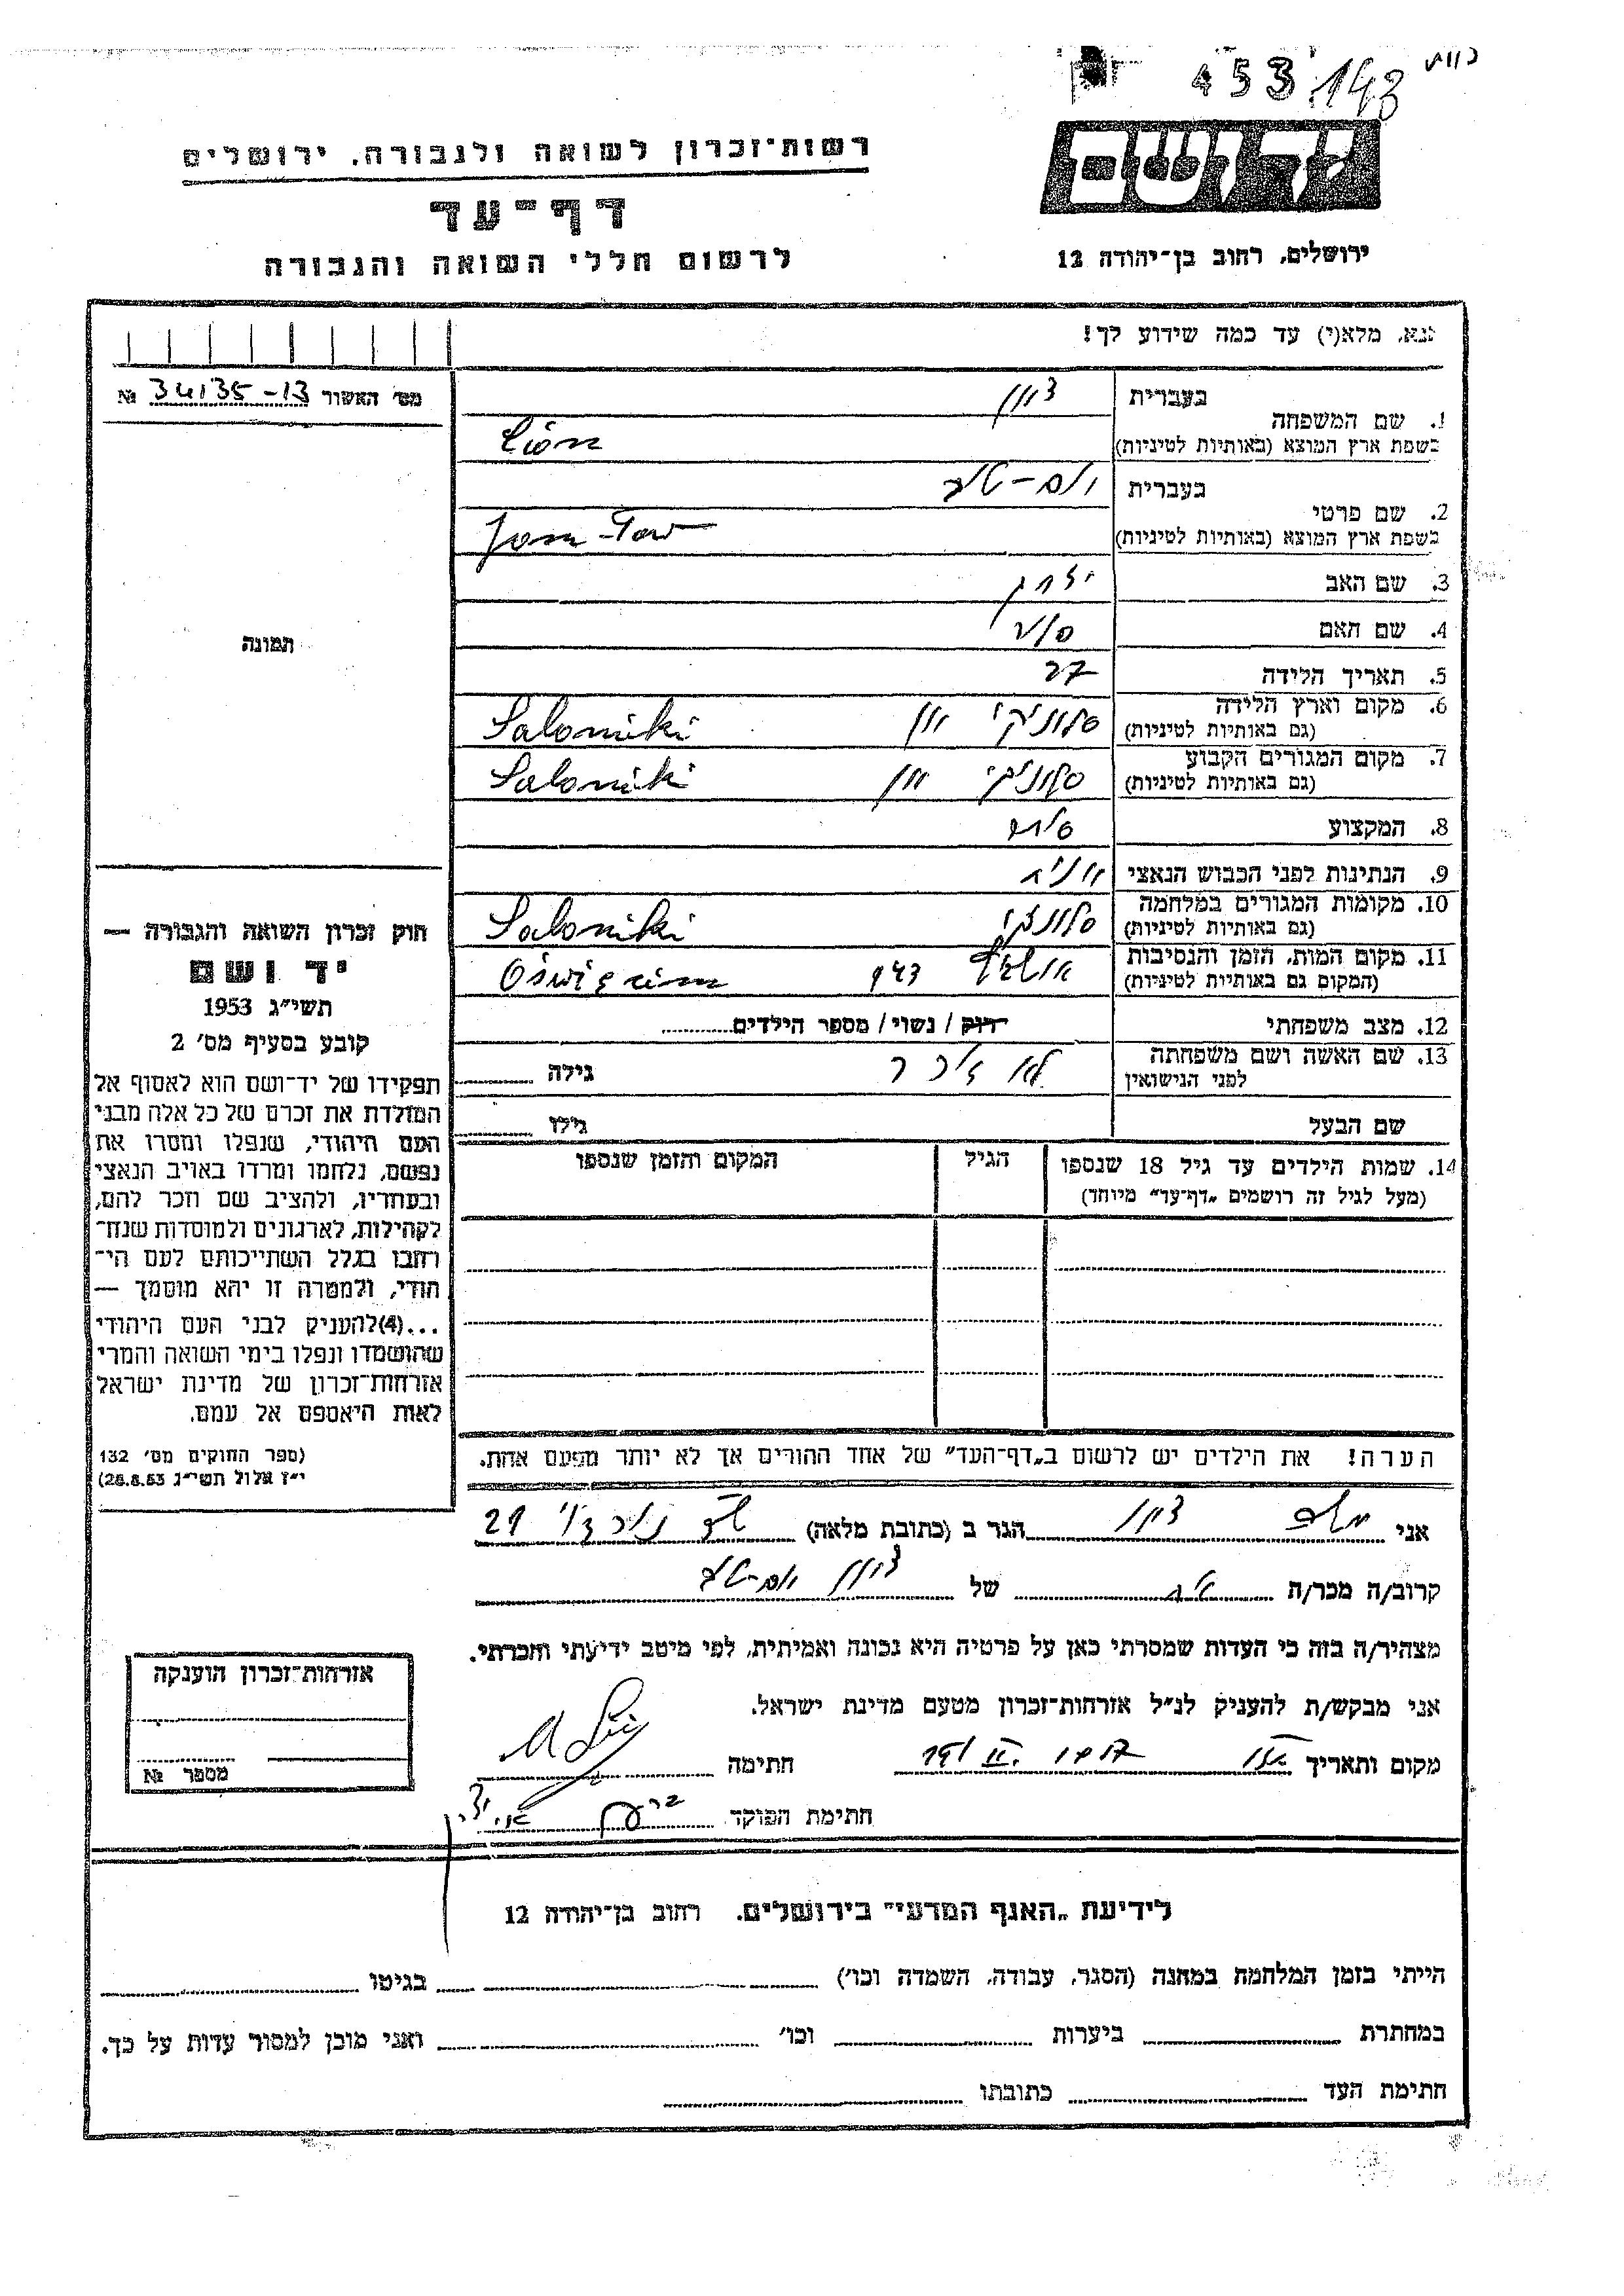 453
143
כוות
יד ושם
רשות־זכרון לשואה ולגבורה, ירושלים
דף־עד
לרשום חללי השואה והגבורה
ירושלים, רחוב בן־יהודה 12
נא, מלא(י) עד כמה שידוע לך!
מס׳ האשור № 34135-13
1. שם המשפחה
בעברית
בשפת ארץ המוצא (באותיות לטיניות)
Lion
2. שם פרטי
בעברית יום-טוב
בשפת ארץ המוצא (באותיות לטיניות)
Jom-Tow
3. שם האב יצחק
4. שם האם
5. תאריך הלידה 27
6. מקום וארץ הלידה
(גם באותיות לטיניות)
סלוניקי יוון Saloniki
7. מקום המגורים הקבוע
(גם באותיות לטיניות)
סלוניקי יוון Saloniki
8. המקצוע סוחר
9. הנתינות לפני הכבוש הנאצי יוונית
10. מקומות המגורים במלחמה
(גם באותיות לטיניות)
סלוניקי Saloniki
11. מקום המות, הזמן והנסיבות
(המקום גם באותיות לטיניות)
943 Oświęcim
12. מצב משפחתי
רווק / נשוי / מספר הילדים
13. שם האשה ושם משפחתה
לפני הנישואין
לא זוכר
גילה
שם הבעל
גילו
14. שמות הילדים עד גיל 18 שנספו
(מעל לגיל זה רושמים „דף־עד״ מיוחד)
הגיל
המקום והזמן שנספו
הערה! את הילדים יש לרשום ב„דף־העד״ של אחד ההורים אך לא יותר מפעם אחת.
תמונה
חוק זכרון השואה והגבורה —
יד ושם
תשי״ג 1953
קובע בסעיף מס׳ 2
תפקידו של יד־ושם הוא לאסוף אל
המולדת את זכרם של כל אלה מבני
העם היהודי, שנפלו ומסרו את
נפשם, נלחמו ומרדו באויב הנאצי
ובעוזריו, ולהציב שם וזכר להם,
לקהילות, לארגונים ולמוסדות שנח־
רבו בגלל השתייכותם לעם הי־
הודי, ולמטרה זו יהא מוסמך —
...(4)להעניק לבני העם היהודי
שהושמדו ונפלו בימי השואה והמרי
אזרחות־זכרון של מדינת ישראל
לאות היאספם אל עמם.
(ספר החוקים מס׳ 132
י״ז אלול תשי״ג 28.8.53)
אני הגר ב (כתובת מלאה) 21
קרוב/ה מכר/ה של יום-טוב
מצהיר/ה בזה כי העדות שמסרתי כאן על פרטיה היא נכונה ואמיתית, לפי מיטב ידיעתי והכרתי.
אני מבקש/ת להעניק לנ״ל אזרחות־זכרון מטעם מדינת ישראל.
מקום ותאריך
חתימה
חתימת הפוקד
אזרחות־זכרון הוענקה
מספר №
לידיעת „האגף המדעי״ בירושלים. רחוב בן־יהודה 12
הייתי בזמן המלחמה במחנה (הסגר, עבודה, השמדה וכו׳) בגיטו
במחתרת ביערות וכו׳ ואני מוכן למסור עדות על כך.
חתימת העד כתובתו